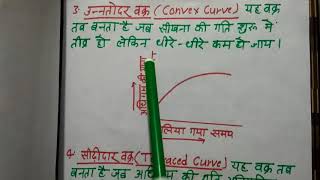 3. उन्नतोदर वक्र (Convex Curve) यह वक्र
तब बनता है जब सीखना की गति शुरू में
तीव्र हो लेकिन धीरे-धीरे कम हो जाय।
लिया गया समय
4. सीढ़ीदार वक्र (T raced Curve) यह वक्र तब
बनता है जब